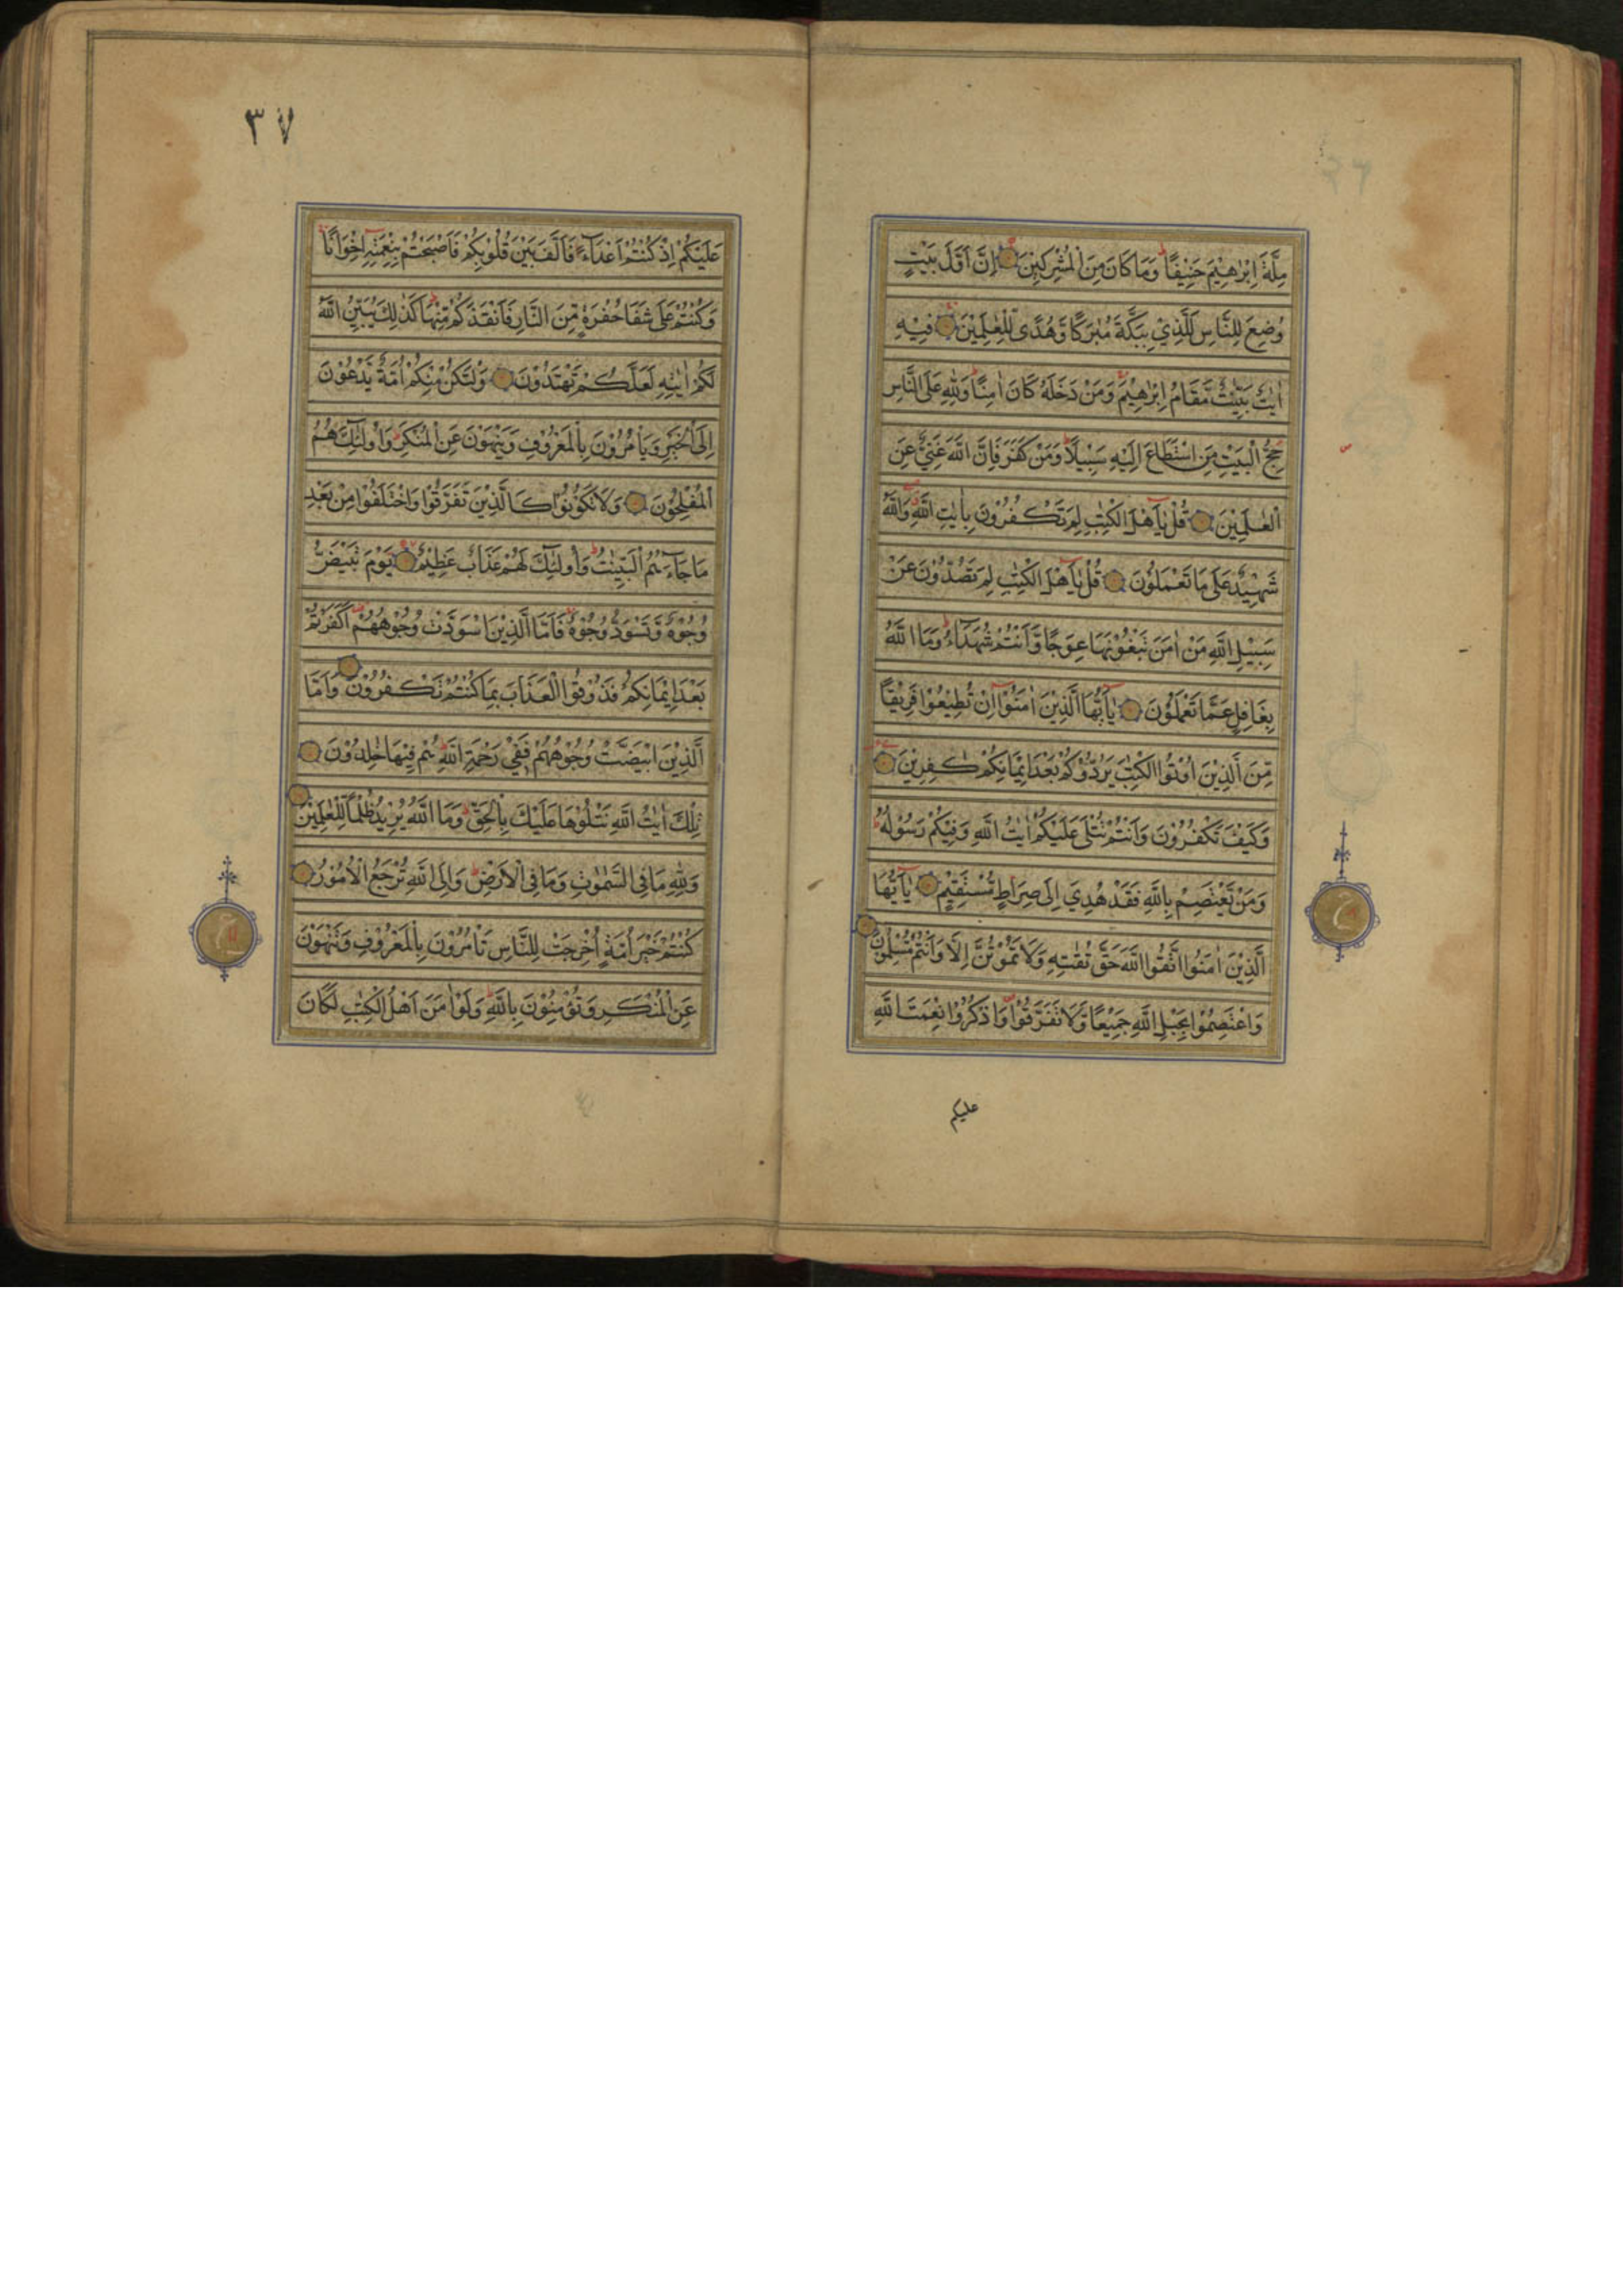 مِلَّةَ اِبْرٰهِيْمَ حَنِيْفًا وَمَا كَانَ مِنَ الْمُشْرِكِيْنَ اِنَّ اَوَّلَ بَيْتٍ
وُضِعَ لِلنَّاسِ لَلَّذِيْ بِبَكَّةَ مُبٰرَكًا وَّهُدًى لِّلْعٰلَمِيْنَ فِيْهِ
اٰيٰتٌ بَيِّنٰتٌ مَّقَامُ اِبْرٰهِيْمَ وَمَنْ دَخَلَهُ كَانَ اٰمِنًا وَلِلّٰهِ عَلَى النَّاسِ
حِجُّ الْبَيْتِ مَنِ اسْتَطَاعَ اِلَيْهِ سَبِيْلًا وَمَنْ كَفَرَ فَاِنَّ اللّٰهَ غَنِيٌّ عَنِ
الْعٰلَمِيْنَ قُلْ يٰٓاَهْلَ الْكِتٰبِ لِمَ تَكْفُرُوْنَ بِاٰيٰتِ اللّٰهِ وَاللّٰهُ
شَهِيْدٌ عَلٰى مَا تَعْمَلُوْنَ قُلْ يٰٓاَهْلَ الْكِتٰبِ لِمَ تَصُدُّوْنَ عَنْ
سَبِيْلِ اللّٰهِ مَنْ اٰمَنَ تَبْغُوْنَهَا عِوَجًا وَّاَنْتُمْ شُهَدَآءُ وَمَا اللّٰهُ
بِغَافِلٍ عَمَّا تَعْمَلُوْنَ يٰٓاَيُّهَا الَّذِيْنَ اٰمَنُوْٓا اِنْ تُطِيْعُوْا فَرِيْقًا
مِّنَ الَّذِيْنَ اُوْتُوا الْكِتٰبَ يَرُدُّوْكُمْ بَعْدَ اِيْمَانِكُمْ كٰفِرِيْنَ
وَكَيْفَ تَكْفُرُوْنَ وَاَنْتُمْ تُتْلٰى عَلَيْكُمْ اٰيٰتُ اللّٰهِ وَفِيْكُمْ رَسُوْلُهُ
وَمَنْ يَّعْتَصِمْ بِاللّٰهِ فَقَدْ هُدِيَ اِلٰى صِرَاطٍ مُّسْتَقِيْمٍ يٰٓاَيُّهَا
الَّذِيْنَ اٰمَنُوا اتَّقُوا اللّٰهَ حَقَّ تُقٰتِهِ وَلَا تَمُوْتُنَّ اِلَّا وَاَنْتُمْ مُّسْلِمُوْنَ
وَاعْتَصِمُوْا بِحَبْلِ اللّٰهِ جَمِيْعًا وَّلَا تَفَرَّقُوْا وَاذْكُرُوْا نِعْمَتَ اللّٰهِ
عليكم
٣٧
عَلَيْكُمْ اِذْ كُنْتُمْ اَعْدَآءً فَاَلَّفَ بَيْنَ قُلُوْبِكُمْ فَاَصْبَحْتُمْ بِنِعْمَتِهِ اِخْوَانًا
وَكُنْتُمْ عَلٰى شَفَا حُفْرَةٍ مِّنَ النَّارِ فَاَنْقَذَكُمْ مِّنْهَا كَذٰلِكَ يُبَيِّنُ اللّٰهُ
لَكُمْ اٰيٰتِهِ لَعَلَّكُمْ تَهْتَدُوْنَ وَلْتَكُنْ مِّنْكُمْ اُمَّةٌ يَّدْعُوْنَ
اِلَى الْخَيْرِ وَيَاْمُرُوْنَ بِالْمَعْرُوْفِ وَيَنْهَوْنَ عَنِ الْمُنْكَرِ وَاُولٰٓئِكَ هُمُ
الْمُفْلِحُوْنَ وَلَا تَكُوْنُوْا كَالَّذِيْنَ تَفَرَّقُوْا وَاخْتَلَفُوْا مِنْ بَعْدِ
مَا جَآءَهُمُ الْبَيِّنٰتُ وَاُولٰٓئِكَ لَهُمْ عَذَابٌ عَظِيْمٌ يَوْمَ تَبْيَضُّ
وُجُوْهٌ وَّتَسْوَدُّ وُجُوْهٌ فَاَمَّا الَّذِيْنَ اسْوَدَّتْ وُجُوْهُهُمْ اَكَفَرْتُمْ
بَعْدَ اِيْمَانِكُمْ فَذُوْقُوا الْعَذَابَ بِمَا كُنْتُمْ تَكْفُرُوْنَ وَاَمَّا
الَّذِيْنَ ابْيَضَّتْ وُجُوْهُهُمْ فَفِيْ رَحْمَةِ اللّٰهِ هُمْ فِيْهَا خٰلِدُوْنَ
تِلْكَ اٰيٰتُ اللّٰهِ نَتْلُوْهَا عَلَيْكَ بِالْحَقِّ وَمَا اللّٰهُ يُرِيْدُ ظُلْمًا لِّلْعٰلَمِيْنَ
وَلِلّٰهِ مَا فِي السَّمٰوٰتِ وَمَا فِي الْاَرْضِ وَاِلَى اللّٰهِ تُرْجَعُ الْاُمُوْرُ
كُنْتُمْ خَيْرَ اُمَّةٍ اُخْرِجَتْ لِلنَّاسِ تَاْمُرُوْنَ بِالْمَعْرُوْفِ وَتَنْهَوْنَ
عَنِ الْمُنْكَرِ وَتُؤْمِنُوْنَ بِاللّٰهِ وَلَوْ اٰمَنَ اَهْلُ الْكِتٰبِ لَكَانَ